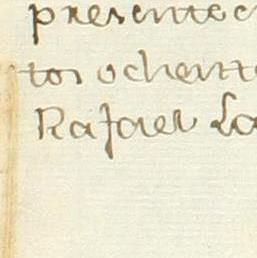 presente
tos ochent
Rafael Lo